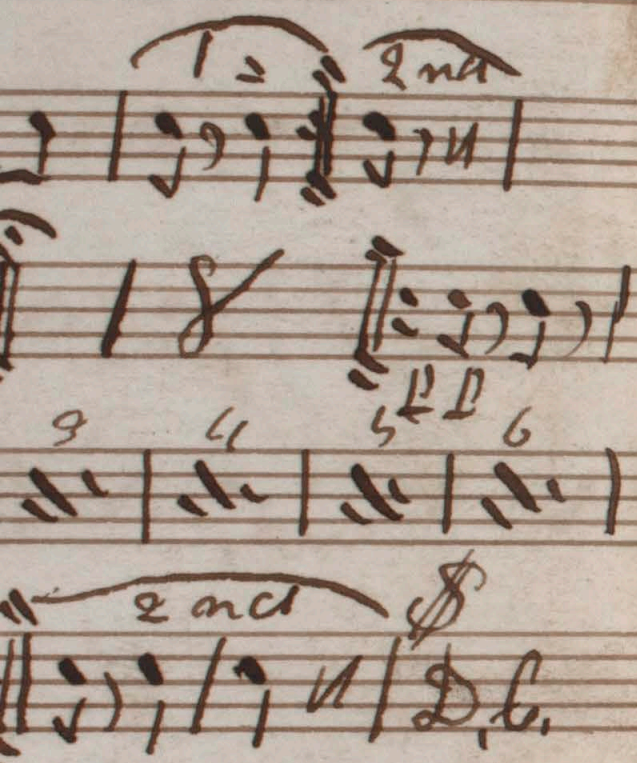 1 2nd
8
PP
3 4 5 6
2nd $
D.C.